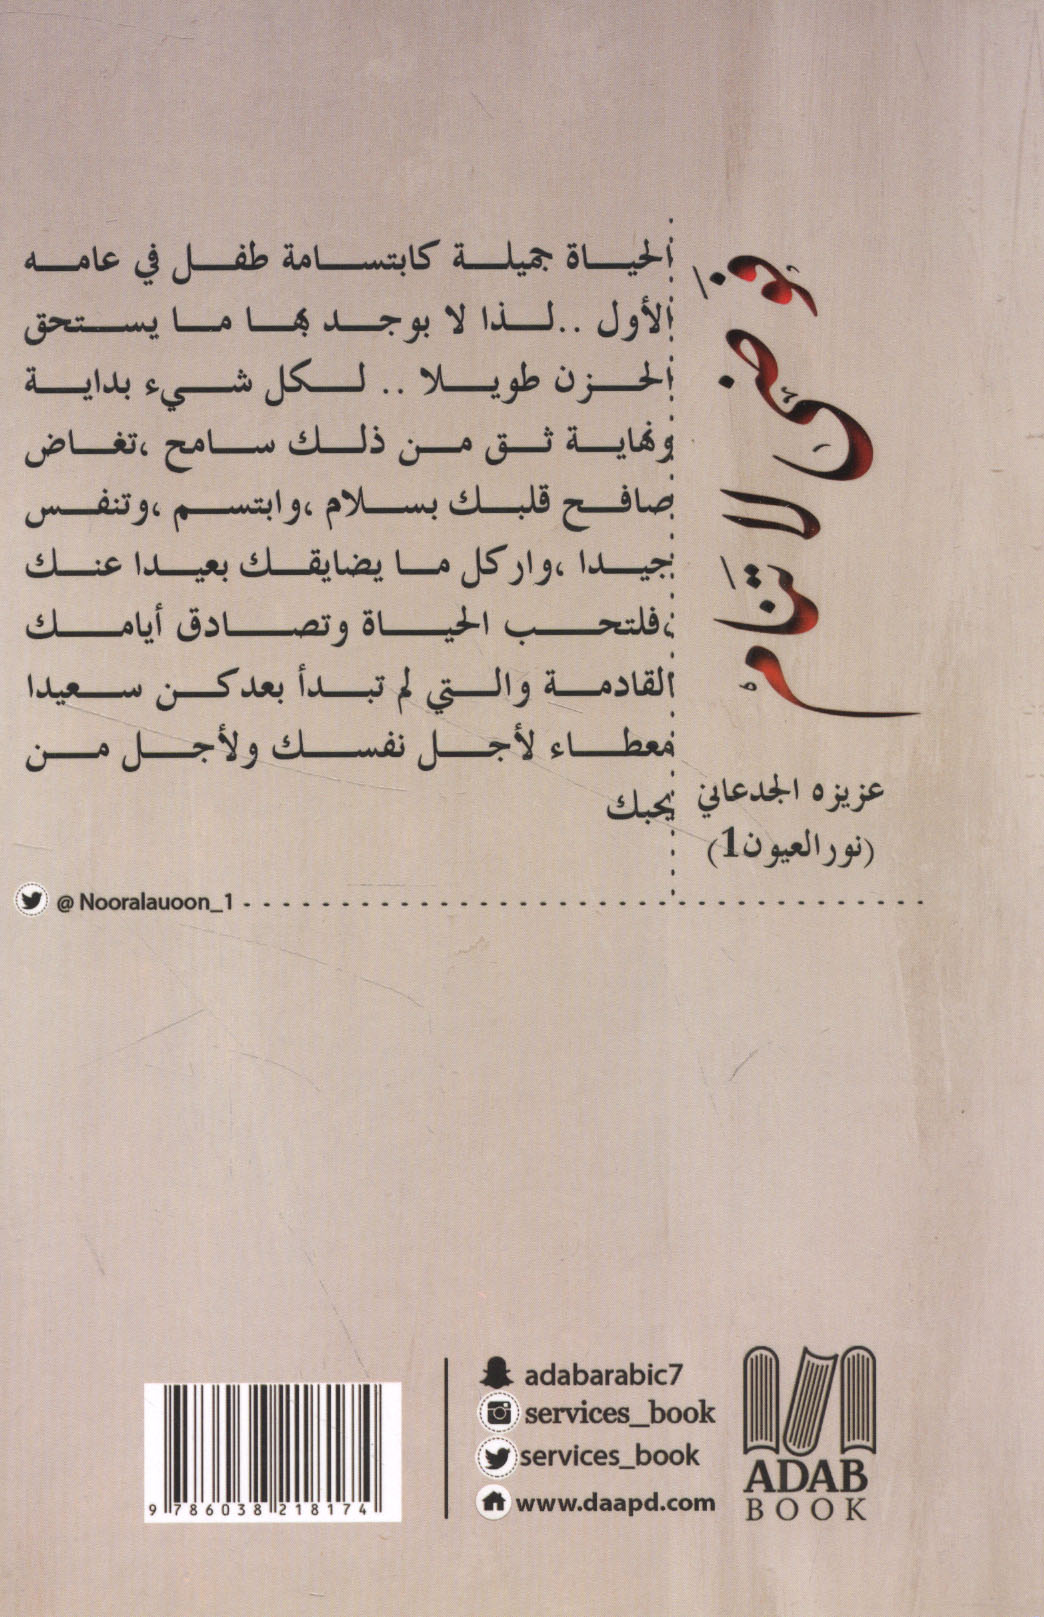 فوضى لا تنام
عزيزه الجدعاني
(نور العيون1)
الحياة جميلة كابتسامة طفل في عامه
الأول ..لذا لا بوجد بها ما يستحق
الحزن طويلا .. لكل شيء بداية
ونهاية ثق من ذلك سامح ،تغاض
صافح قلبك بسلام ،وابتسم ،وتنفس
جيدا ،واركل ما يضايقك بعيدا عنك
،فلتحب الحياة وتصادق أيامك
القادمة والتي لم تبدأ بعدكن سعيدا
معطاء لأجل نفسك ولأجل من
يحبك
@ Nooralauoon_1
adabarabic7
services_book
services_book
www.daapd.com
ADAB
BOOK
9 786038 218174